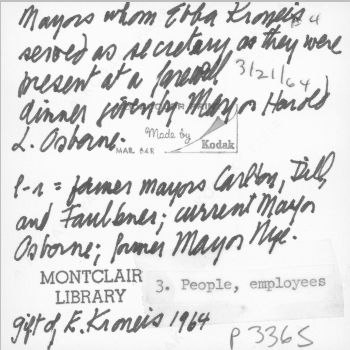 Mayors whom Ebba Kroneis
served as secretary as they were
present at a farewell 3/21/64
dinner given by Mayor Harold
L. Osborne.
Made by
Kodak
MAR
l-r = former mayors Carlson, Dill,
and Faulkner; current Mayor
Osborne; former Mayor Nye.
MONTCLAIR
LIBRARY
3. People, employees
gift of E. Kroneis 1964
P3365